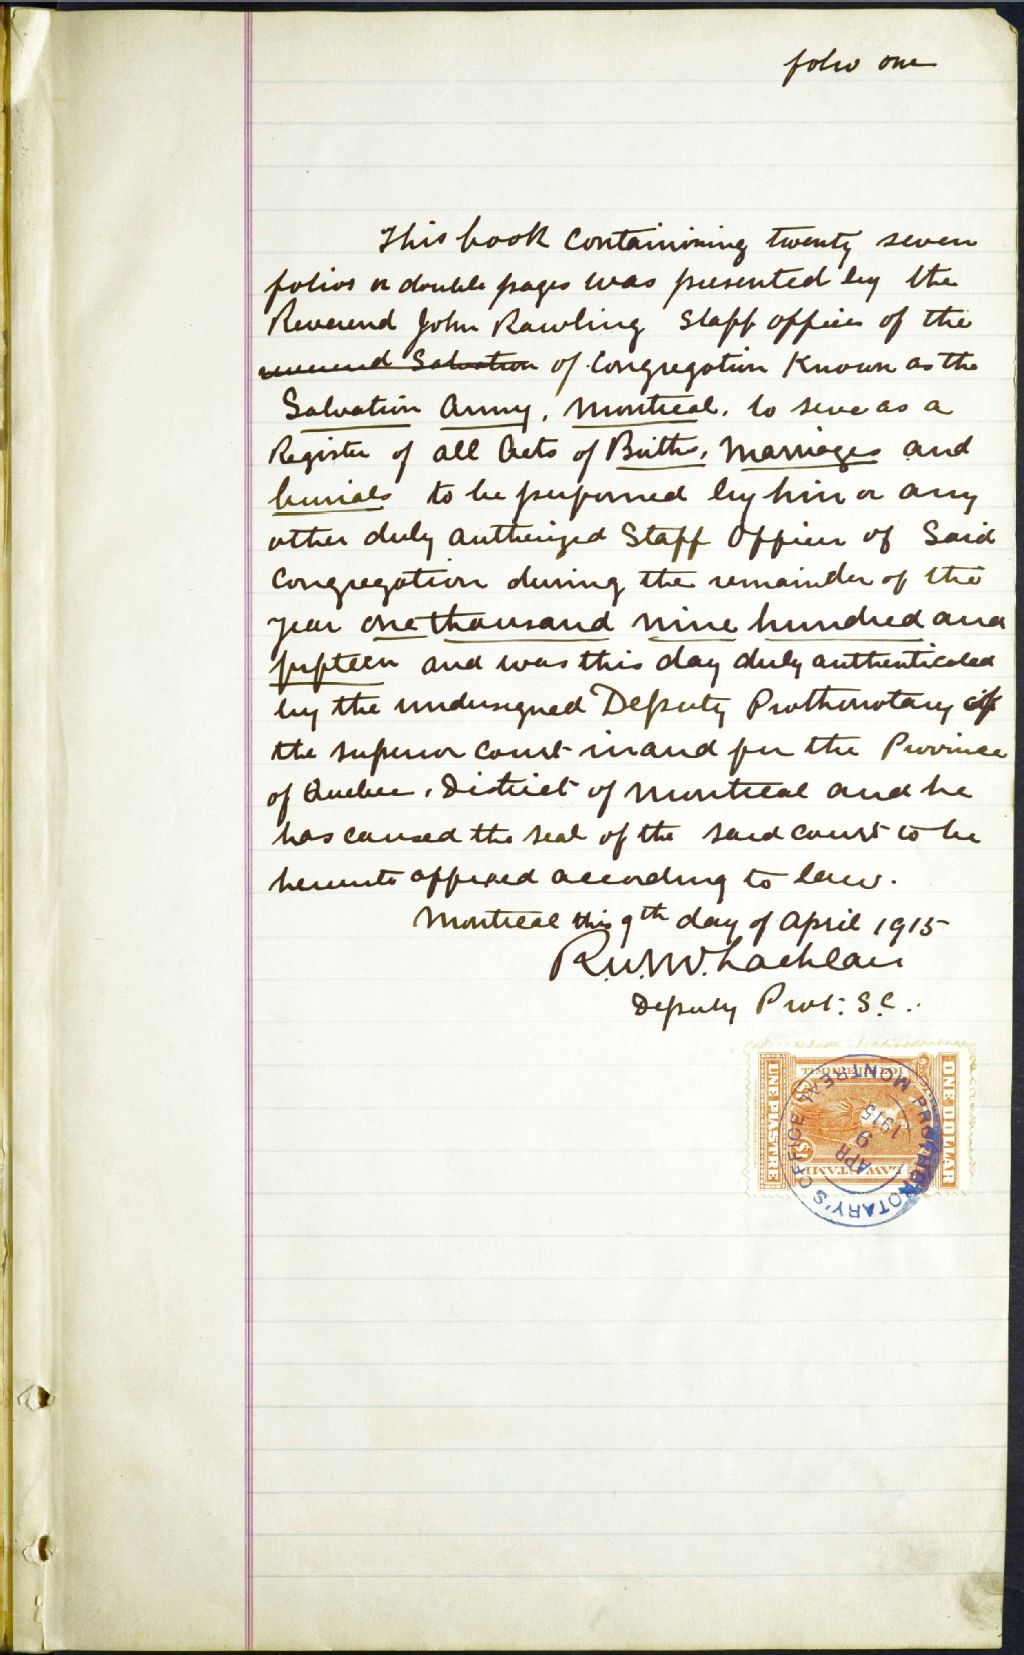 folio one
This book containining twenty seven
folios or double pages was presented by the
Reverend John Rawling Staff officer of the
reverend Salvation of Congregation Known as the
Salvation Army, Montreal, to serve as a
Register of all Acts of Births, Marriages and
burials to be performed by him or any
other duly authorized Staff Officer of Said
Congregation during the remainder of the
year one thousand nine hundred and
fifteen and was this day duly authenticated
by the undersigned Deputy Prothonotary of
the Superior Court in and for the Province
of Quebec, District of Montreal and he
has caused the seal of the said court to be
hereunto affixed according to law.
Montreal this 9th day of April 1915
Deputy Prot: S.C.
ONE DOLLAR
LAW STAMP
$1
UNE PIASTRE
PROTHONOTARY'S OFFICE MONTREAL
APR
9
1915